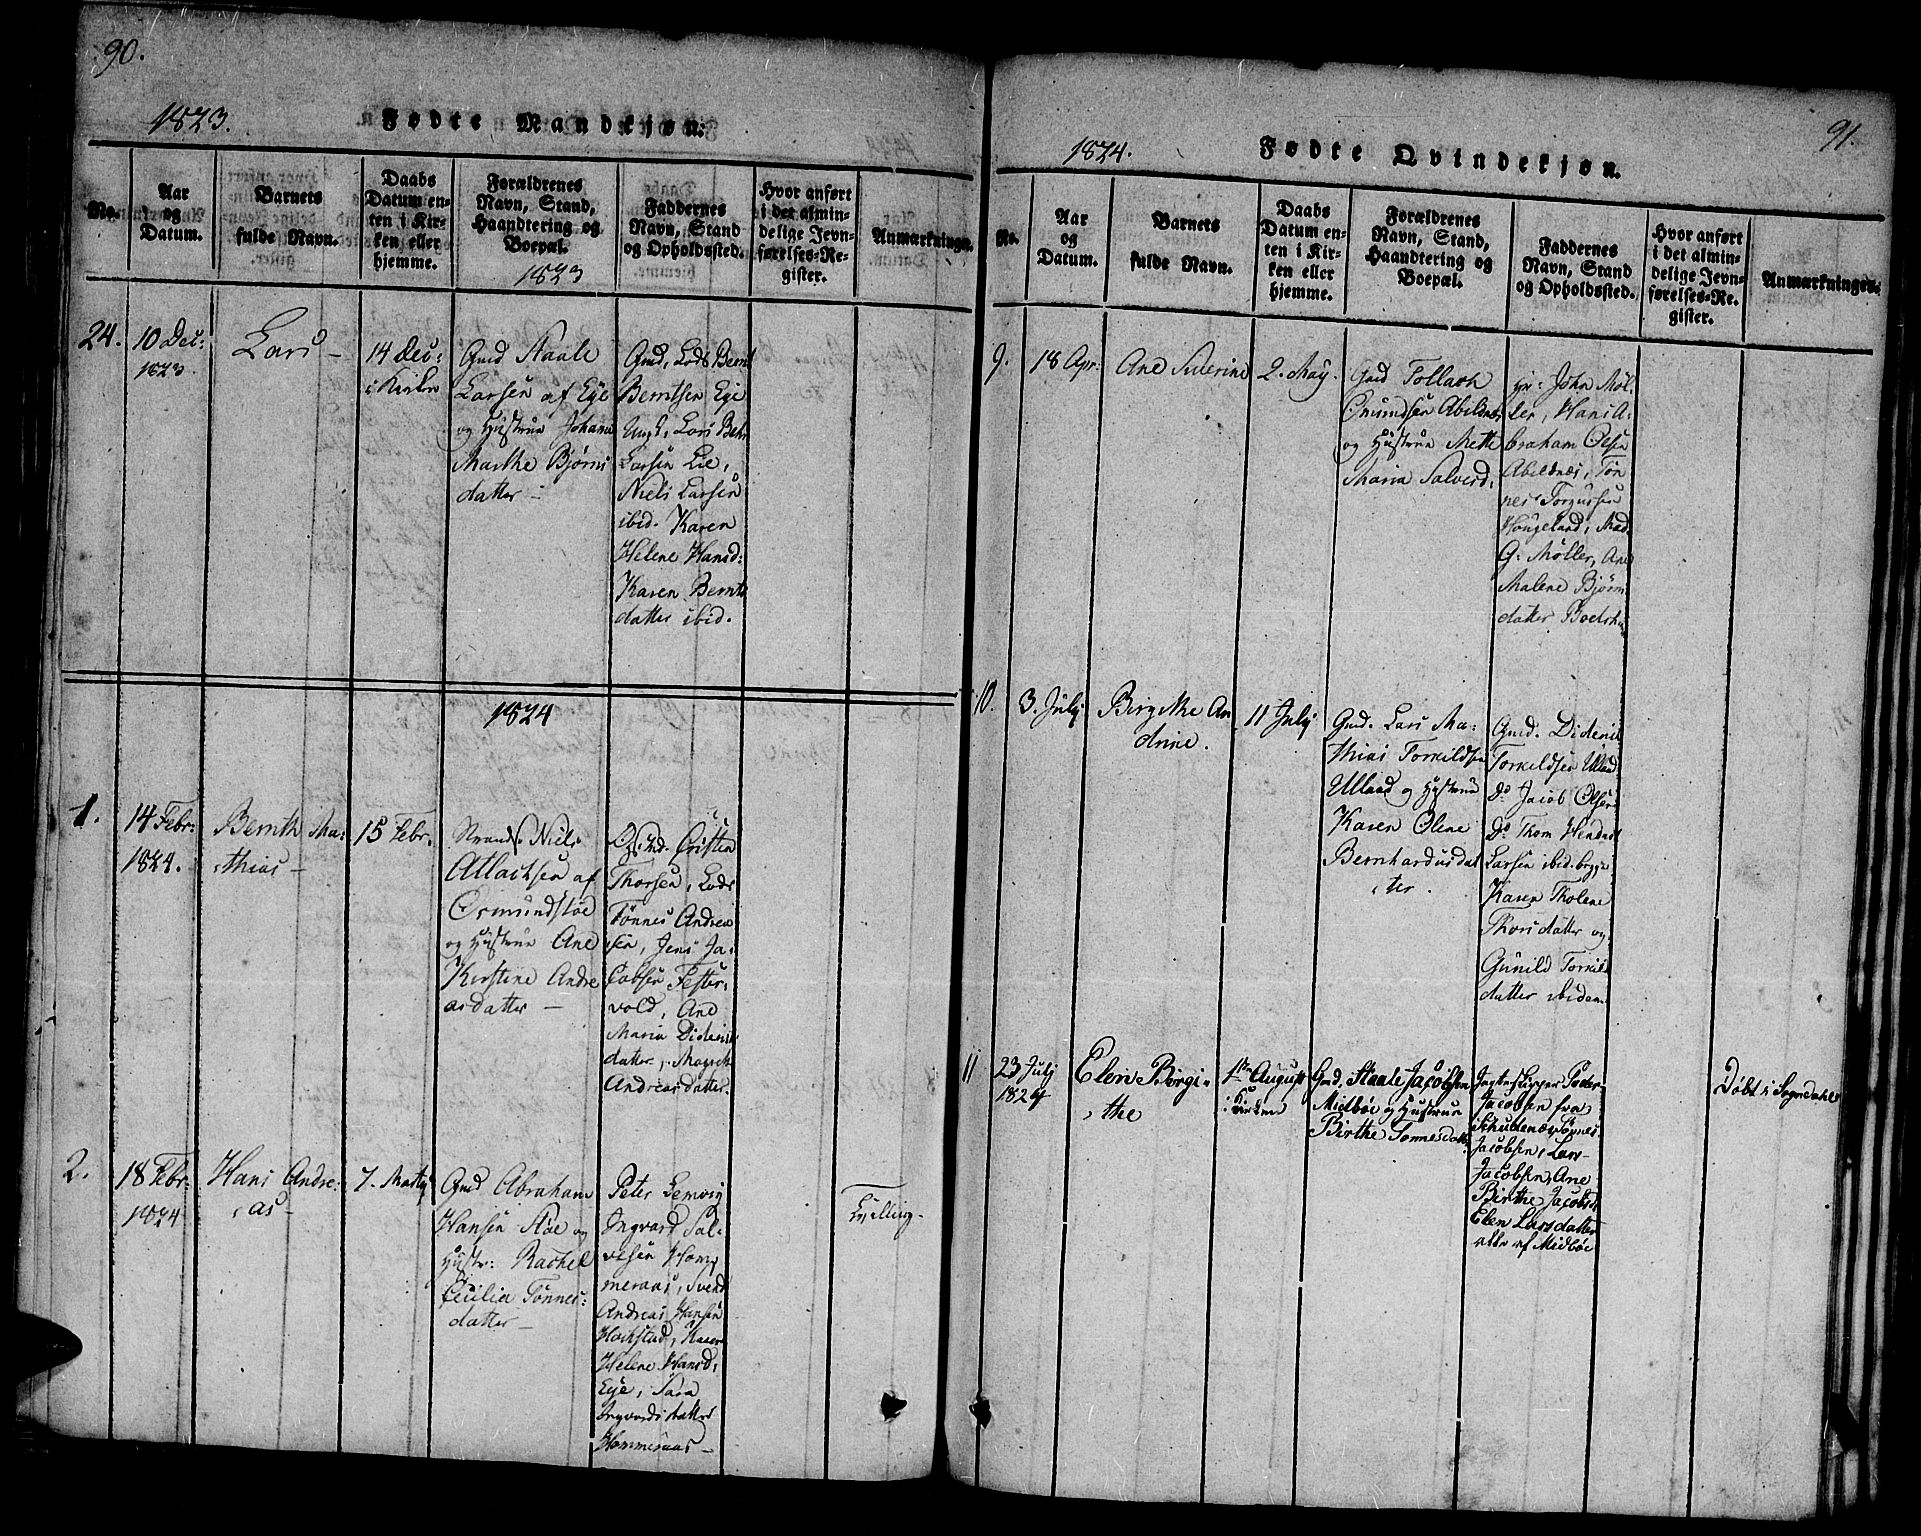 90.
1823.
Fødte Mandkjøn.
No.
Aar
og
Datum.
Barnets
fulde Navn.
Daabs
Datum en-
ten i Kir-
ken eller
hjemme.
Forældrenes
Navn, Stand,
Haandtering og
Boepæl.
Faddernes
Navn, Stand
og Opholdssted.
Hvor anført
i det almin-
delige Jevn-
førelses-Re-
gister.
Anmærkninger.
1823
24.
10 Dec:
1823.
Lars -
14 Dec:
i Kirke
Gmd Staale
Larsen af Eye
og Hustrue Johane
Marthe Bjørns
datter -
Gmd, Lods Bernt
Berntsen Eye
Ungk, Lars
Larsen Lie,
Niels Larsen
ibid. Karen
Helene Hansd:
Karen Bernts
datter ibid.
1824
1.
14 Febr:
1824.
Bernth Ma:
thias -
15 Febr.
Strands. Niels
Atlaksen af
Ormundstøe
og Hustrue Ane
Kirstine Andre
asdatter -
Cristen
Thorsen, Lods
Tønnes Andrea
sen, Jens Ja:
cobsen Fester:
vold, Ane
Maria Diderik
datter,
Andreasdatter.
2.
18 Febr:
1824
Hans Andre:
as -
7. Martj
Gmd Abraham
Hansen Støe og
Hustr: Rachel
Cecilia Tønnes:
datter -
Peter Lemvig
Ingvard Sal-
vesen Hom
meraas, Svend
Andreas Hansen
Hochstad, Karen
Helene Hansd,
Eye, Sara
Ingvardsdatter
Hommeraas -
Tvilling -
91.
1824.
Fødte Qvindekjøn.
No.
Aar
og
Datum.
Barnets
fulde Navn.
Daabs
Datum en-
ten i Kir-
ken eller
hjemme.
Forældrenes
Navn, Stand,
Haandtering og
Boepæl.
Faddernes
Navn, Stand
og Opholdssted.
Hvor anført
i det almin-
delige Jevn-
førelses-Re-
gister.
Anmærkninger.
9.
18 Apr.
Ane Severine
2. May.
Gmd Tollach
Omundsen Abildnes
og Hustrue Mette
Maria Salvesd.
John Møl-
ler, Hans A:
braham Olsen
Abildnes, Tøn
nes Torgussen
Hougeland, Mad.
G. Møller, Ane
Malene Bjørns
datter
10.
3. Julj
Birgithe An
drine.
11 Julj
Gmd. Lars Ma:
thias Torkildsen
Ulland og Hustrue
Karen Olene
Bernhardusdat
ter.
Gmd. Diderik
Torkildsen Ulland
Do Jacob Olsen
Do Thom Hendrik
Larsen ibid.
Karen Tholene
Thorsdatter og
Gunild Torkils
datter ibidem
11
23 Julj
1824
Elen Birgi-
the
1ste August
i Kirken
Gmd. Staale Jacobsen
Midbøe og Hustrue
Birthe Tønnesdatter
Jagteskipper Peder
Jacobsen fra
Skudenæs, Tønnes
Jacobsen, Lars
Jacobsen, Ane
Birthe Jacobsd:
Elen Larsdatter
alle af Midbøe
Døbt i Sogndahl